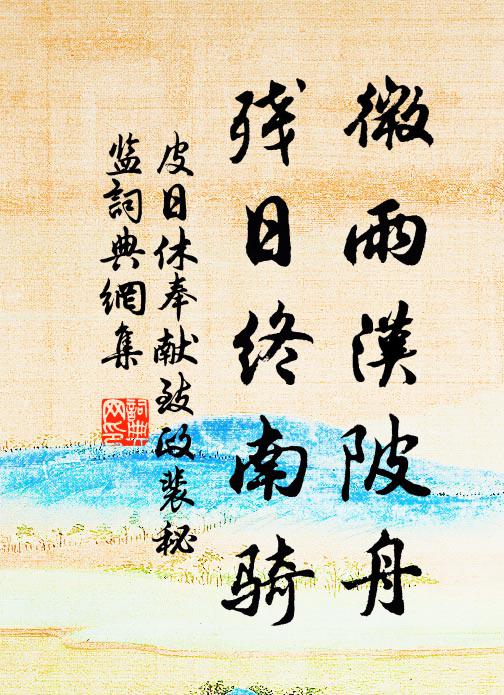 微雨漢陂舟
残日终南骑
皮日休奉献致政裴秘
监詞典網集
詞典网印